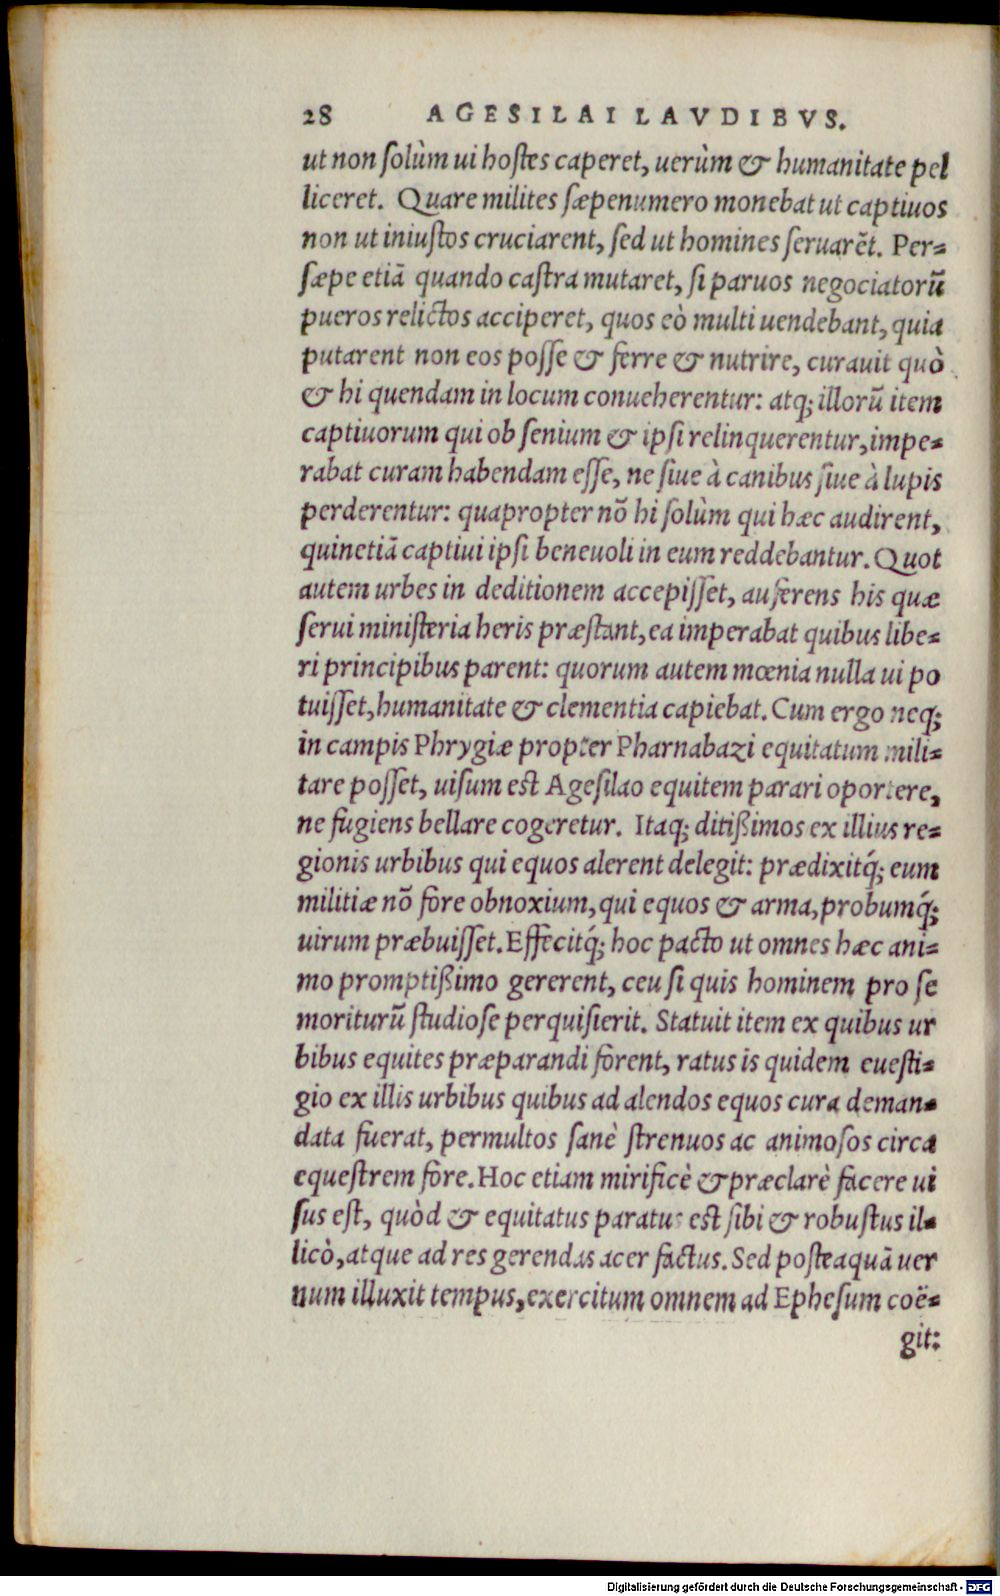 28 AGESILAI LAVDIBVS.
ut non solùm ui hostes caperet, uerùm & humanitate pel
liceret. Quare milites sæpenumero monebat ut captiuos
non ut iniustos cruciarent, sed ut homines seruarēt. Per=
sæpe etiā quando castra mutaret, si paruos negociatorū
pueros relictos acciperet, quos eò multi uendebant, quia
putarent non eos posse & ferre & nutrire, curauit quò
& hi quendam in locum conueherentur: atq; illorū item
captiuorum qui ob senium & ipsi relinquerentur, impe=
rabat curam habendam esse, ne siue à canibus siue à lupis
perderentur: quapropter nō hi solùm qui hæc audirent,
quinetiā captiui ipsi beneuoli in eum reddebantur. Quot
autem urbes in deditionem accepisset, auferens his quæ
serui ministeria heris præstant, ea imperabat quibus libe=
ri principibus parent: quorum autem mœnia nulla ui po
tuisset, humanitate & clementia capiebat. Cum ergo neq;
in campis Phrygiæ propter Pharnabazi equitatum mili=
tare posset, uisum est Agesilao equitem parari oportere,
ne fugiens bellare cogeretur. Itaq; ditißimos ex illius re=
gionis urbibus qui equos alerent delegit: prædixitq́; eum
militiæ nō fore obnoxium, qui equos & arma, probumq́;
uirum præbuisset. Effecitq́; hoc pacto ut omnes hæc ani=
mo promptißimo gererent, ceu si quis hominem pro se
moriturū studiose perquisierit. Statuit item ex quibus ur
bibus equites præparandi forent, ratus is quidem euesti=
gio ex illis urbibus quibus ad alendos equos cura deman=
data fuerat, permultos sanè strenuos ac animosos circa
equestrem fore. Hoc etiam mirificè & præclarè facere ui
sus est, quòd & equitatus paratus est sibi & robustus il=
licò, atque ad res gerendas acer factus. Sed posteaquā uer
num illuxit tempus, exercitum omnem ad Ephesum coë=
git:
Digitalisierung gefördert durch die Deutsche Forschungsgemeinschaft - DFG